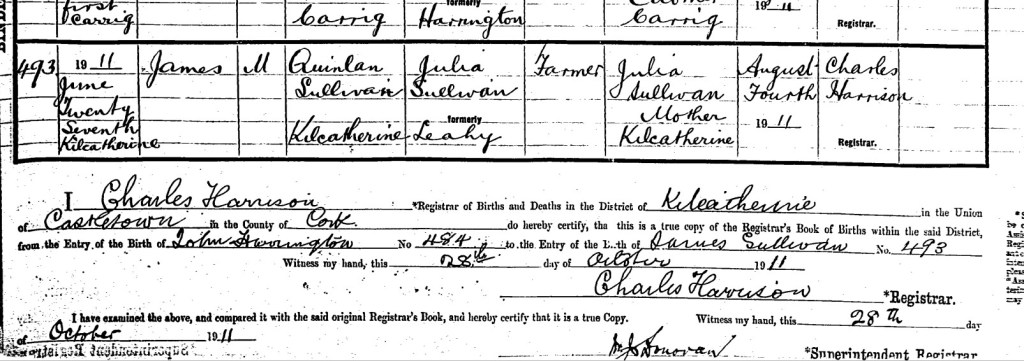 first
formerly
19 11
Carrig
Carrig
Harrington
Carrig
Registrar.
493
19 11
James
M
Quinlan
Julia
Farmer
Julia
August
Charles
June
Sullivan
Sullivan
Sullivan
Fourth
Harrison
Twenty
Mother
Seventh
formerly
19 11
Kilcatherine
Kilcatherine
Leahy
Kilcatherine
Registrar.
I Charles Harrison *Registrar of Births and Deaths in the District of Kilcatherine in the Union
of Castletown in the County of Cork do hereby certify, tha this is a true copy of the Registrar's Book of Births within the said District,
from the Entry of the Birth of John Harrington No 484 to the Entry of the Birth of James Sullivan No. 493
Witness my hand, this 28th day of October 1911
Charles Harrison *Registrar.
I have examined the above, and compared it with the said original Registrar's Book, and hereby certify that it is a true Copy. Witness my hand, this 28th day
of October 1911
Donovan *Superintendent Registrar